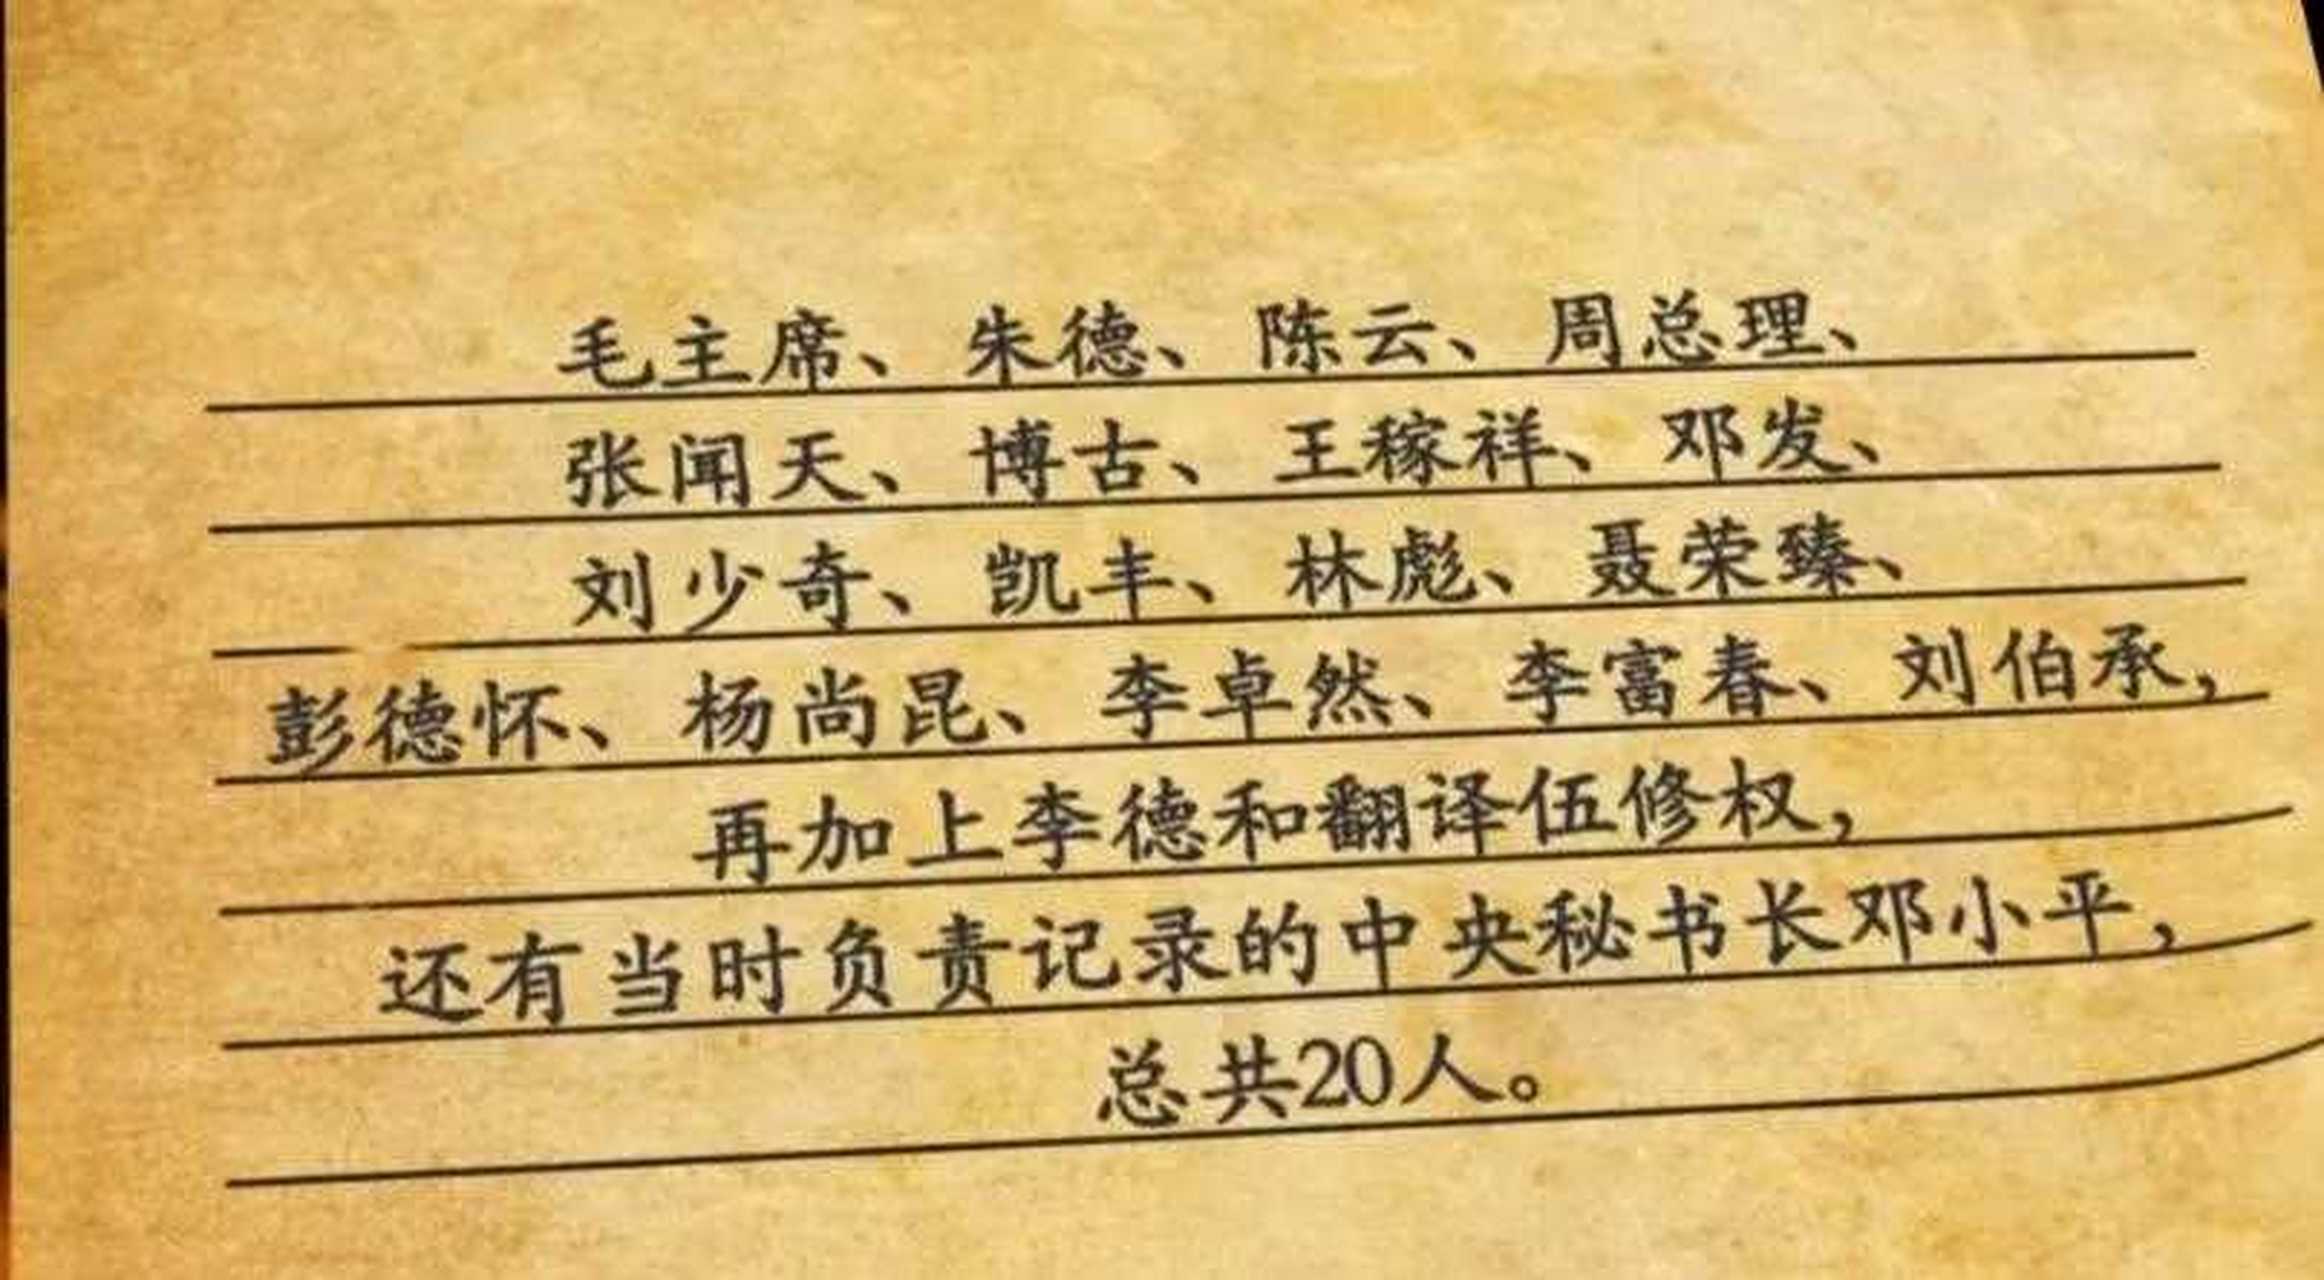 毛主席、朱德、陈云、周总理、
张闻天、博古、王稼祥、邓发、
刘少奇、凯丰、林彪、聂荣臻、
彭德怀、杨尚昆、李卓然、李富春、刘伯承，
再加上李德和翻译伍修权，
还有当时负责记录的中央秘书长邓小平，
总共20人。